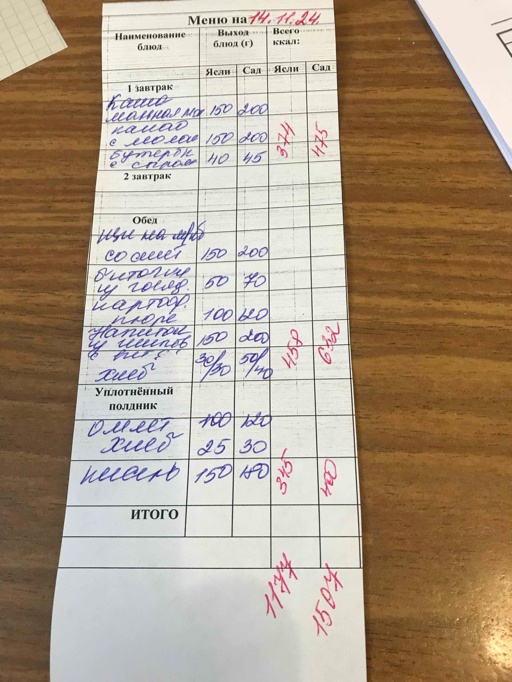 Меню на 14.11.24
Наименование блюд Выход блюд (г) Всего ккал:
Ясли Сад Ясли Сад
1 завтрак
Каша
манная мол 150 200
какао
с молок 150 200 374 475
бутерб
с сыром 40 45
2 завтрак
Обед
Щи на м/б
со смет 150 200
биточки
из говяд. 50 70
картоф.
пюре 100 120
напиток
из шипов 150 200 458 632
хлеб 30/30 50/40
Уплотнённый полдник
Омлет 100 120
Хлеб 25 30
кисель 150 180 345 400
ИТОГО
1177 1507